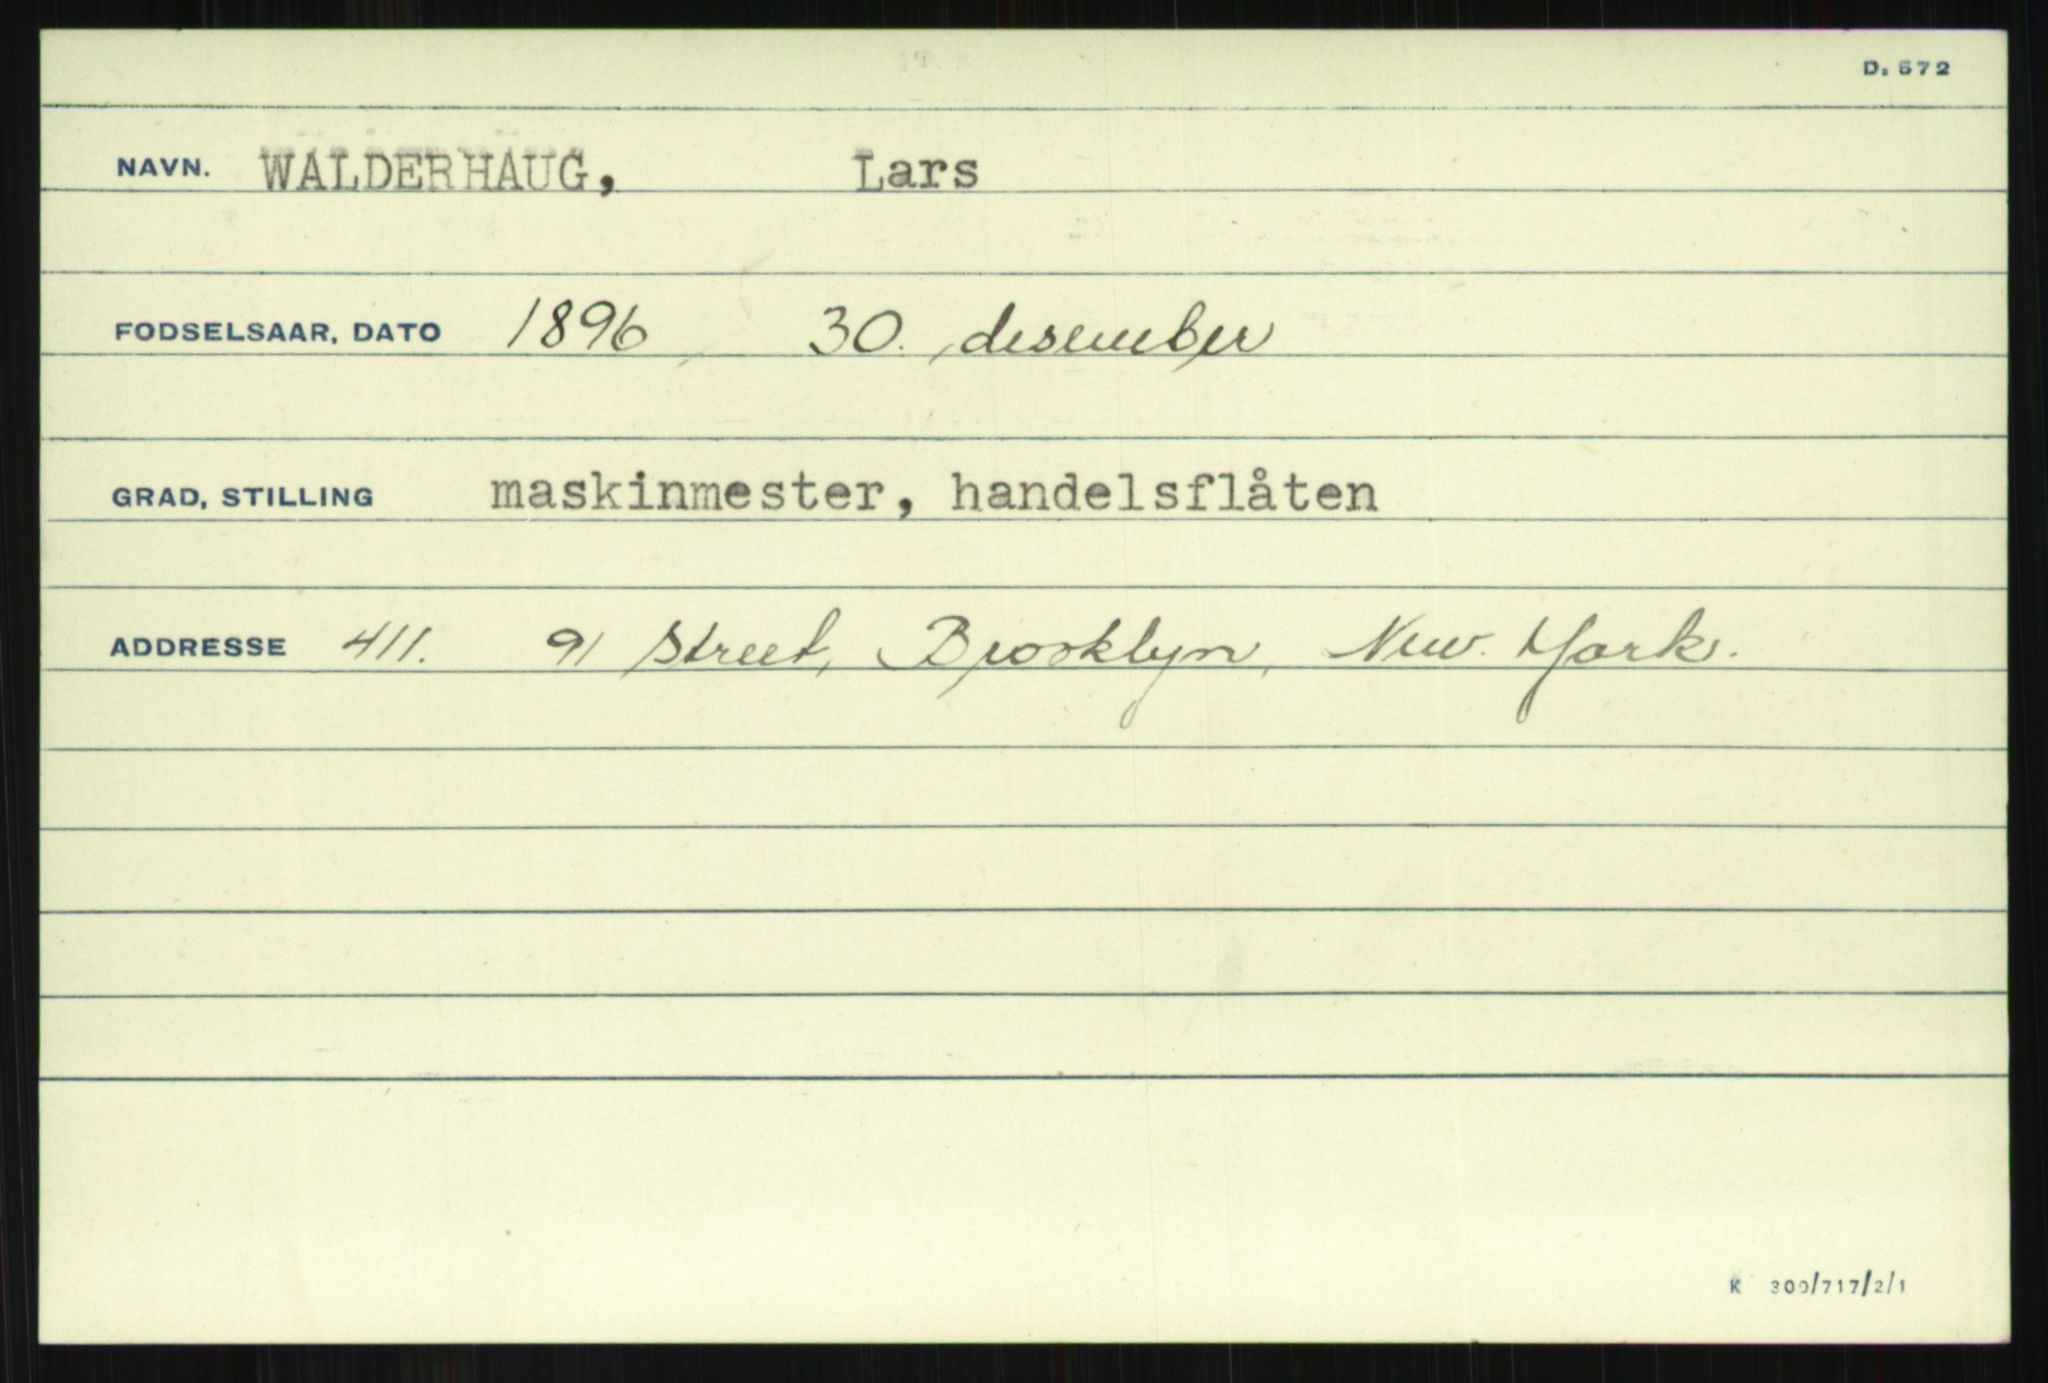 D. 572
NAVN. WALDERHAUG, Lars
FODSELSAAR, DATO 1896 30. desember
GRAD, STILLING maskinmester, handelsflåten
ADDRESSE 411. 91 Street, Brooklyn, New. York.
K 300/717/2/1